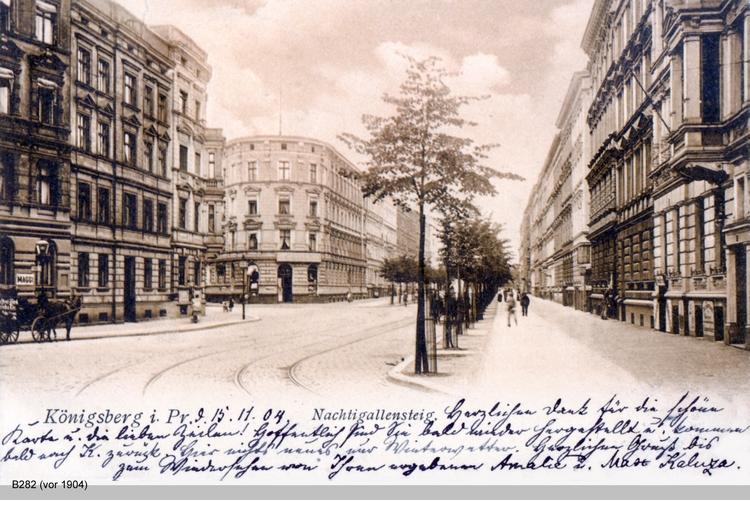 MAGGI
Königsberg i. Pr. d. 15.11.04 Nachtigallensteig. Herzlichen Dank für die schöne
Karte u. die lieben Zeilen! Hoffentlich sind Sie bald wieder hergestellt u. kommen
bald nach K. zurück. Hier nichts neues, nur Winterwetter. Herzlichen Gruß bis
zum Wiedersehen von Ihren ergebenen Amalie u. Max Kaluza.
B282 (vor 1904)